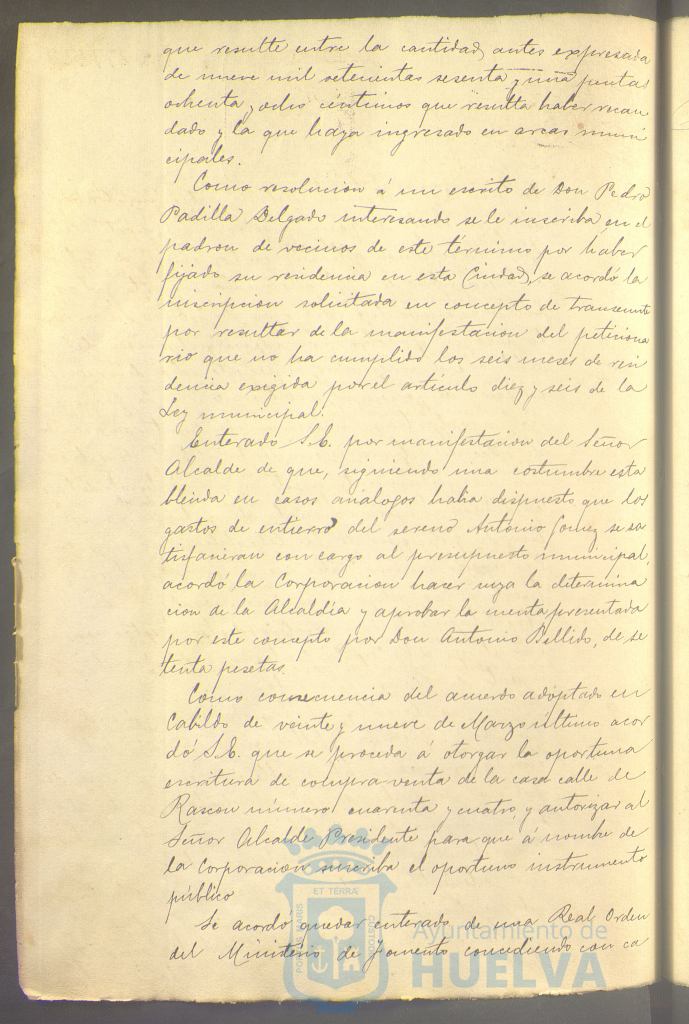 que resulte entre la cantidad antes expresada
de nueve mil setecientas sesenta y una pesetas
ochenta y ocho céntimos que resulta haber recau
dado y la que haya ingresado en arcas muni
cipales.
Como resolucion á un escrito de Don Pedro
Padilla Delgado interesando se le inscriba en el
padron de vecinos de este término por haber
fijado su residencia en esta Ciudad, se acordó la
inscripcion solicitada en concepto de transeunte
por resultar de la manifestacion del peticiona
rio que no ha cumplido los seis meses de resi
dencia exigida por el artículo diez y seis de la
Ley municipal.
Enterado S.E. por manifestacion del Señor
Alcalde de que, siguiendo una costumbre esta
blecida en casos análogos habia dispuesto que los
gastos de entierro del sereno Antonio Gomez se sa
tisfacieran con cargo al presupuesto municipal,
acordó la Corporacion hacer suya la determina
cion de la Alcaldía y aprobar la cuenta presentada
por este concepto por Don Antonio Bellido, de se
tenta pesetas.
Como consecuencia del acuerdo adoptado en
Cabildo de veinte y nueve de Marzo último acor
dó S.E. que se proceda á otorgar la oportuna
escritura de compra-venta de la casa calle de
Rascon número cuarenta y cuatro, y autorizar al
Señor Alcalde Presidente para que á nombre de
la Corporacion suscriba el oportuno instrumento
público
Se acordó quedar enterado de una Real Orden
del Ministerio de Fomento concediendo con ca
PORTUS MARIS ET TERRAE CUSTODIA
Ayuntamiento de
HUELVA